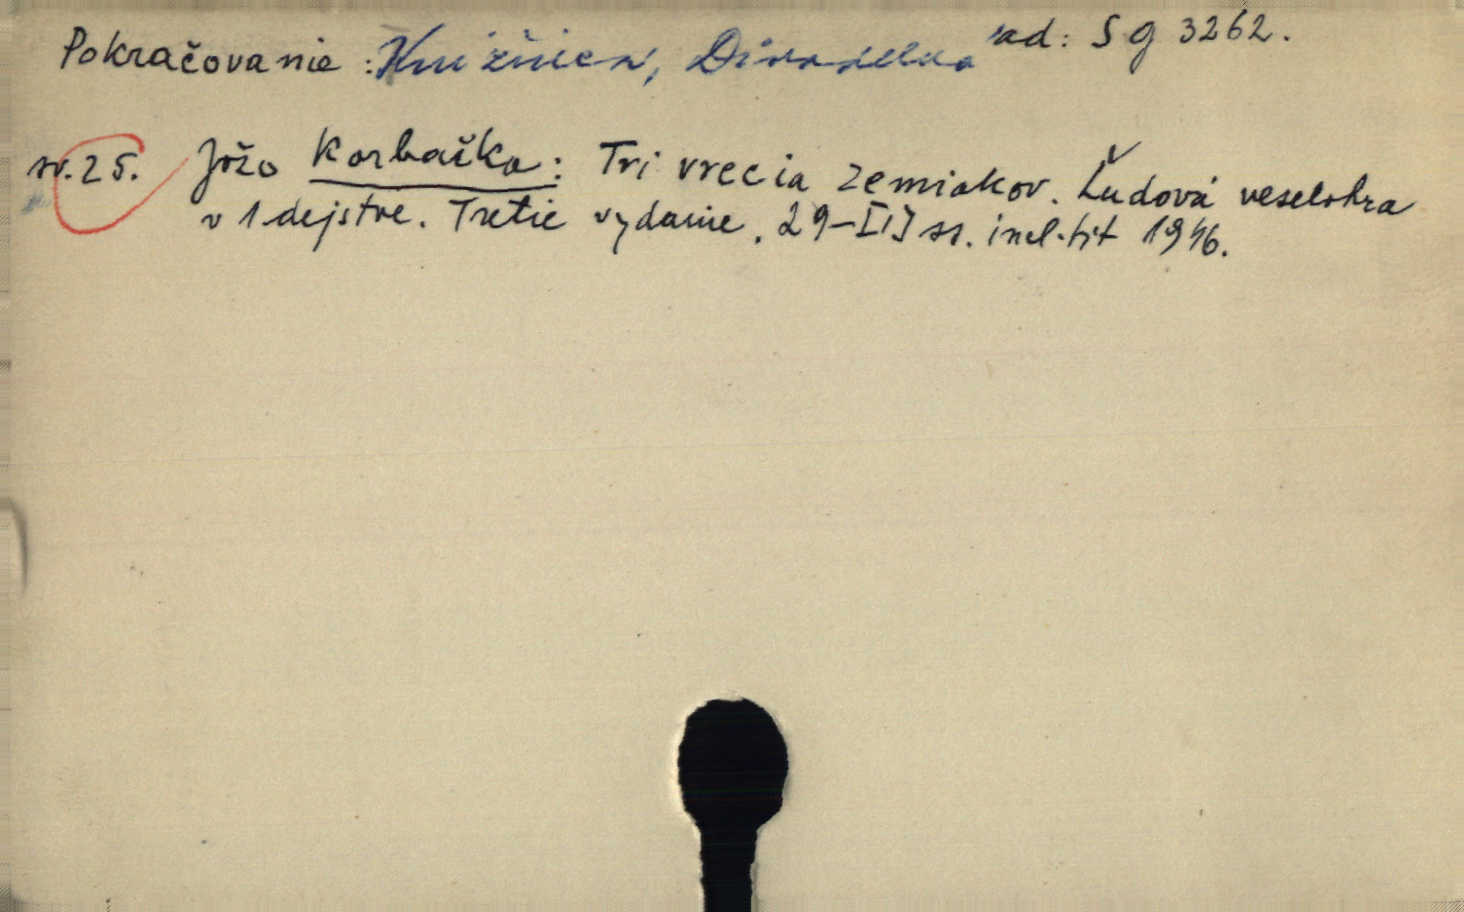 Pokračovanie: Knižnica, Divadelna ad: Sg 3262.
sv. 25. Jožo Korbačka: Tri vrecia zemiakov. Ľudová veselohra
v 1 dejstve. Tretie vydanie. 29-[1] ss. incl. tit 1946.